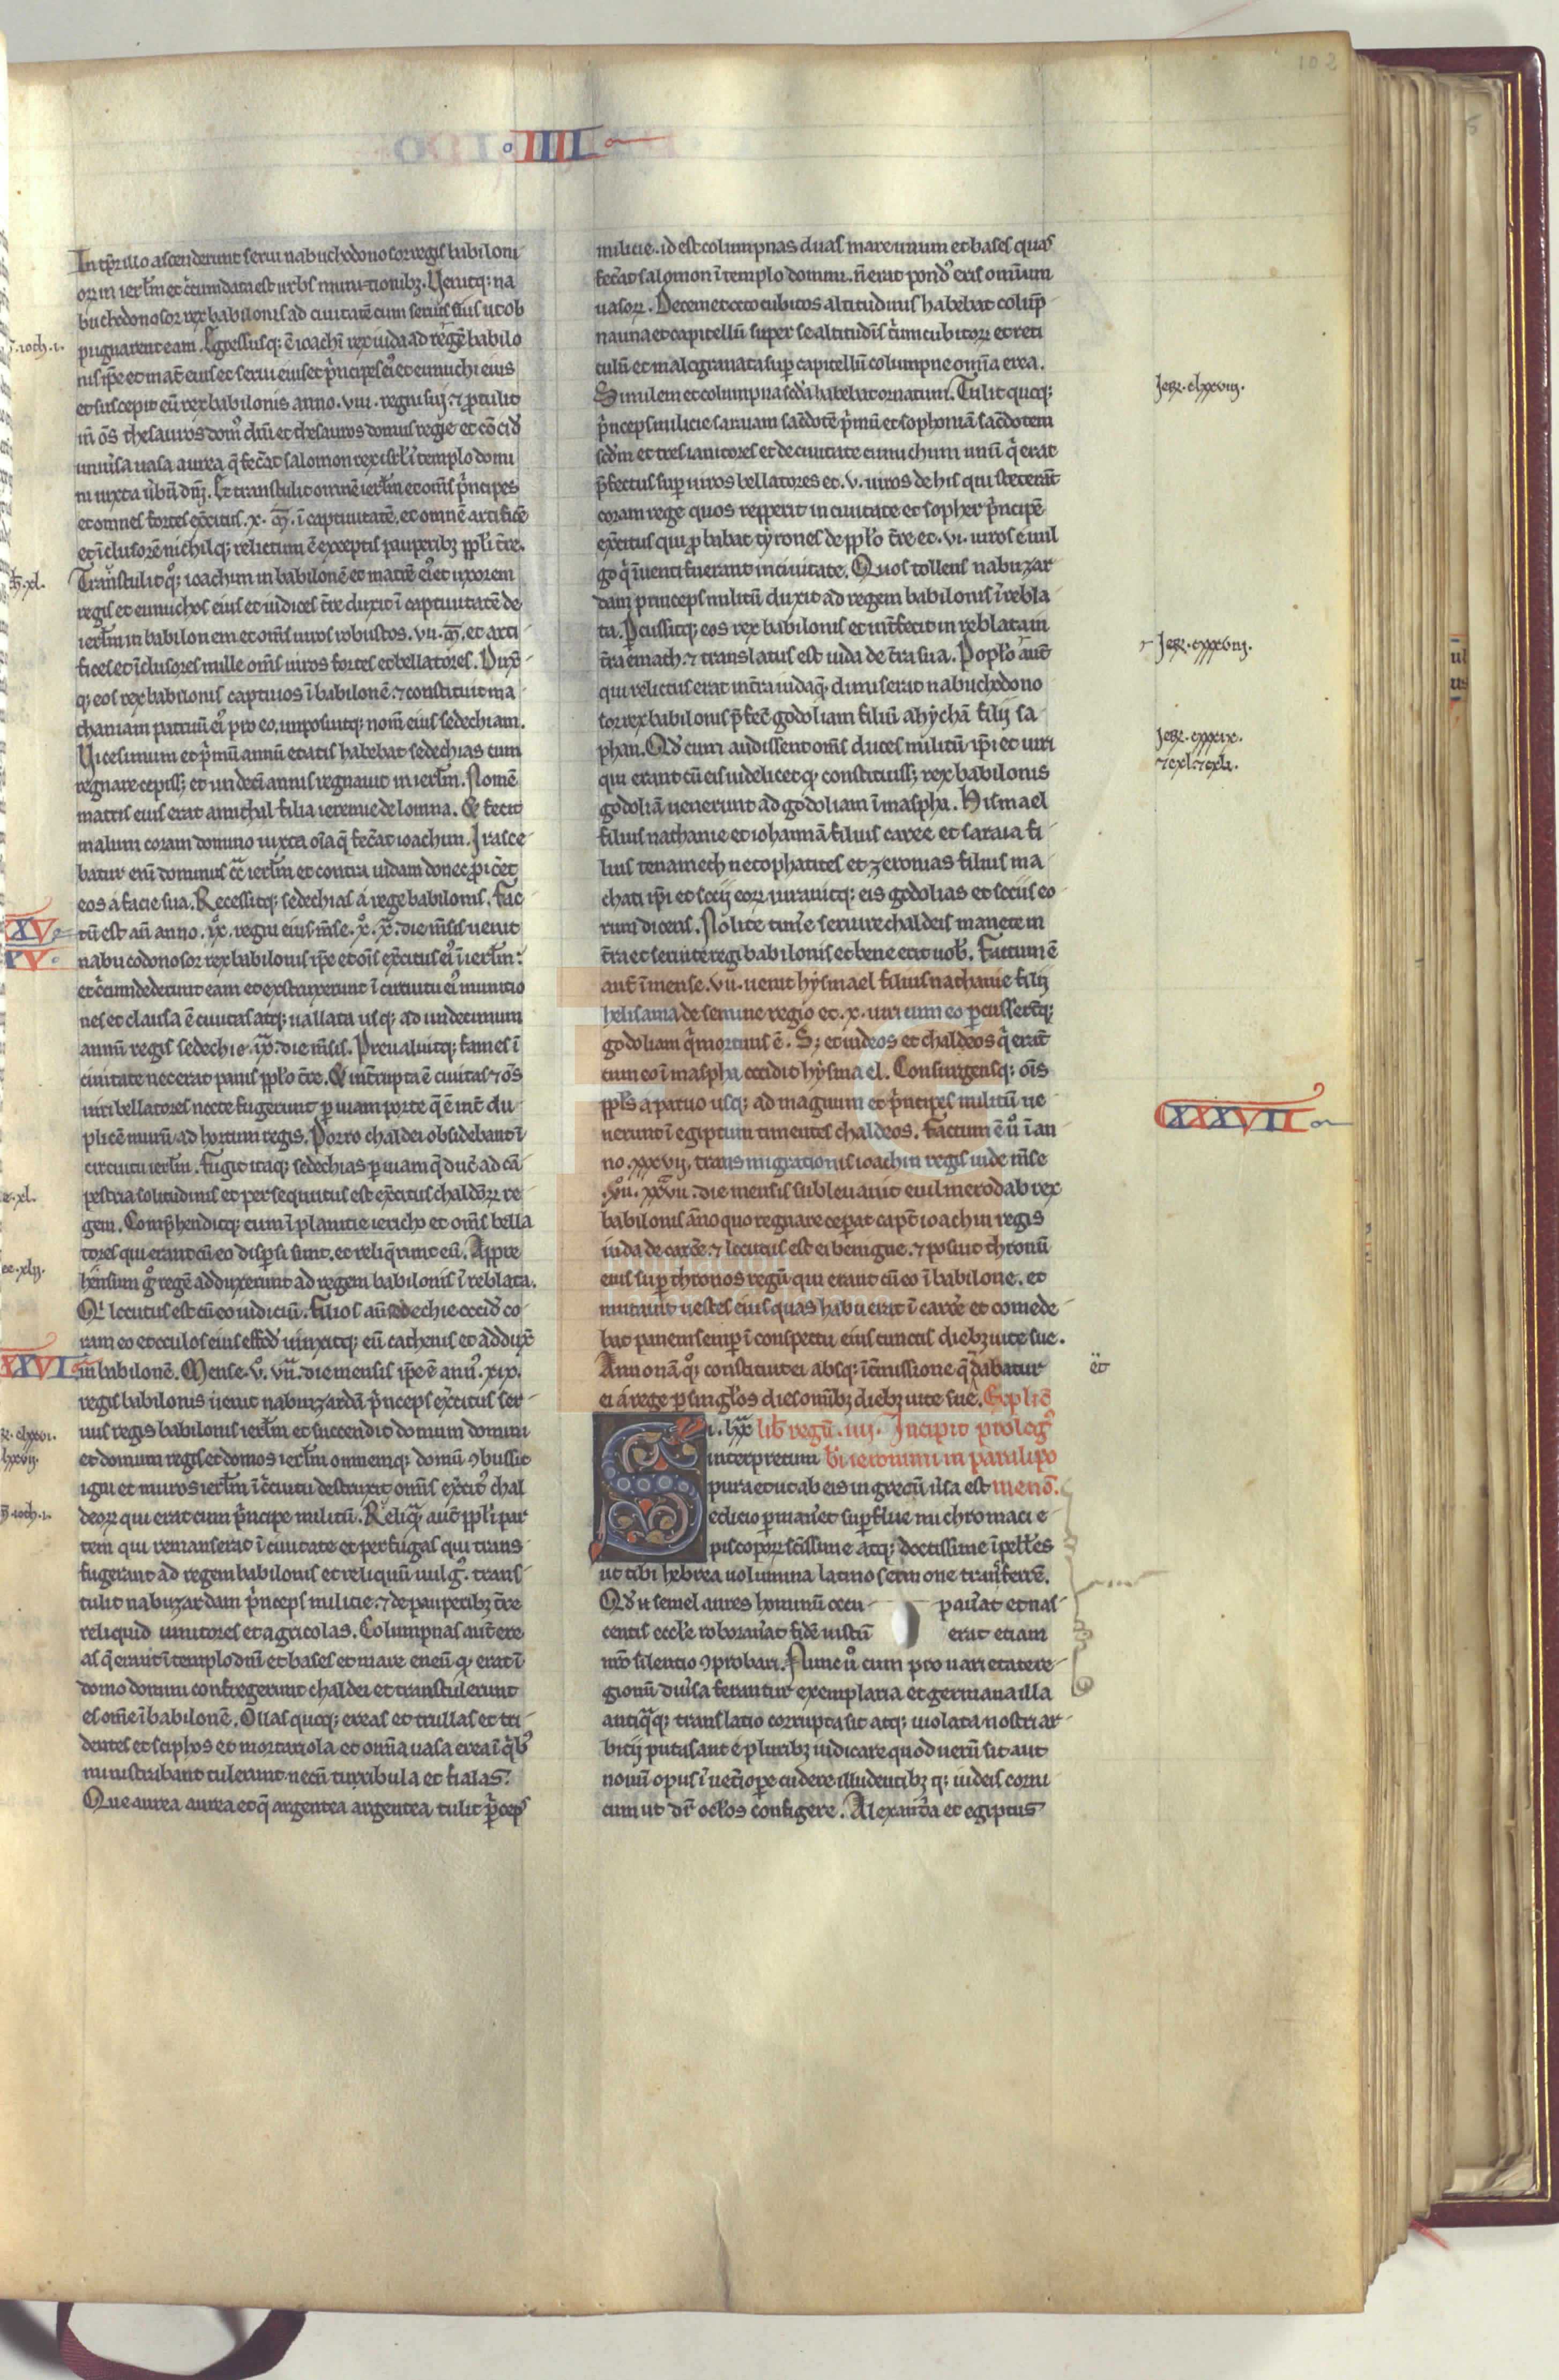 102
IIII
In tp̄r illo ascenderunt serui nabuchodonosor regis babiloni
orꝝ in ierl̄m et circumdata est urbs munitionibꝫ. Venitqꝫ na
buchodonosor rex babilonis ad ciuitatē cum seruis suis ut ob
pugnarent eam. Egressusqꝫ ē ioachī rex iuda ad regē babilo
nis ip̄e et mat̄ eius et serui eius et pͥncipes eiꝰ et eunuchi eius
et suscepit eū rex babilonis anno. viii. regni sui. ⁊ ꝓtulit
in̄ om̄s thesauros domꝰ dn̄i et thesauros domus regie et cōcid̛
uniůsa uasa aurea q̄ fec̄at salomon rex isrl̄ ī templo domi
ni iuxta ůbū dn̄i. Et transtulit omnē ierl̄m et om̄s pͥncipes
et omnes fortes exc̄itus. x. m̄. ī captiuitatē. et omnē artificē
et īclusorē nichilqꝫ relictum ē exceptis pauperibꝫ ppl̄i tr̄e.
Transtulit qꝫ ioachim in babilonē et matrē eiꝰ et uxorem
regis et eunuchos eius et iudices tr̄e duxit ī captiuitatē de
ierl̄m in babilonem et om̄s uiros robustos. vii. m̄. et arti
fices et īclusores mille om̄s uiros fortes et bellatores. Dux̄
qꝫ eos rex babilonis captiuos ī babilonē. ⁊ constituit ma
thaniam patruū eiꝰ pro eo. imposuitqꝫ nom̄ eius sedechiam.
Vicesimum et pͥmū annū etatis habebat sedechias cum
regnare cepissꝫ et undeci annis regnauit in ierl̄m. Nomē
matris eius erat amithal filia ieremie de lomna. Et fecit
malum coram domino iuxta oīa q̄ fec̄at ioachim. Irasce
batur enī dominus cͣ ierl̄m et contra iudam donec ꝓic̄et
eos a facie sua. Recessitqꝫ sedechias a rege babilonis. Fac
tū est aū anno. ix. regni eius m̄se. x. x. die m̄sis uenit
nabucodonosor rex babilonis ip̄e et om̄s exc̄itus eiꝰ ī ierl̄m.
et cͥcumdederunt eam et exstruxerunt ī circuitu eiꝰ munitio
nes et clausa ē ciuitas atqꝫ uallata usqꝫ ad undecimum
annū regis sedechie. ix. die m̄sis. Preualuitqꝫ fames ī
ciuitate nec erat panis ppl̄o tr̄e. Et int̄rupta ē ciuitas ⁊ om̄s
uiri bellatores nocte fugerunt ꝑ uiam porte q̄ ē int̄ du
plicē murū ad hortum regis. Porro chaldei obsidebant ī
circuitu ierl̄m. Fugit itaqꝫ sedechias ꝑ uiam q̄ duc̄ ad cā
pestria solitudinis et persequutus est exc̄itus chaldeoꝝ re
gem. Compͥhenditqꝫ eum ī planitie iericho et om̄s bella
tores qui erant cū eo disꝑsi sunt. et reliq̄runt eū. Appre
hensum gͦ regē adduxerunt ad regem babilonis ī reblata.
Qͥ locutus est cū eo iudiciū. Filios aū sedechie occid̛ co
ram eo et oculos eius effod̛ uinxitqꝫ eū cathenis et addux̄
in babilonē. Mense. v. vii. die mensis ip̄e ē annꝰ. xix.
regis babilonis uenit nabuzardā pͥnceps exc̄itus ser
uus regis babilonis ierl̄m et succendit domum domini
et domum regis et domos ierl̄m omnemqꝫ domū ꝯbussit
igni et muros ierl̄m ī cͥcuitu destruxit om̄is exc̄itꝰ chal
deoꝝ qui erat cum pͥncipe militū. Reliqͣ aut̄ ppl̄i par
tem qui remanserat ī ciuitate et perfugas qui trans
fugerant ad regem babilonis et reliquū uulgꝰ. trans
tulit nabuzardam pͥnceps milicie. ⁊ de pauperibꝫ tr̄e
reliquid uinitores et agricolas. Columpnas aut̄ ere
as q̄ erant ī templo dn̄i et bases et mare eneū qͦ erat ī
domo domini confregerunt chaldei et transtulerunt
es om̄e ī babilonē. Ollas quoqꝫ ereas et trullas et tri
dentes et sciphos et mortariola et omnia uasa erea ī qͥbꝰ
ministrabant tulerunt necn̄ turribula et fialas.
Que aurea aurea et q̄ argentea argentea tulit pͥncepˢ
milicie. id est columpnas duas mare unum et bases quas
fec̄at salomon ī templo domini. n̄ erat pondꝰ eris omnium
uasoꝝ. Decem et octo cubitos altitudinis habebat colūp
na una et capitellū super se altitudīs tͥum cubitoꝝ et reti
culū et malogranata suꝑ capitellū columpne om̄ia erea.
Similem et columpna scd̄a habebat ornatum. Tulit quoqꝫ
pͥnceps milicie saraiam sac̄dotē pͥmū et sophoniā sac̄dotem
scd̄m et tres ianitores et de ciuitate eunuchum unū qͥ erat
p̄fectus suꝑ uiros bellatores et. v. uiros de his qui steterāt
coram rege quos repperit in ciuitate et sopher pͥncipē
exc̄itus qui ꝓbabat tyrones de ppl̄o tr̄e et. vi. uiros e uul
go qͥ inuenti fuerant in ciuitate. Quos tollens nabuzar
dam princeps militū duxit ad regem babilonis ī rebla
ta. Ꝑcussitqꝫ eos rex babilonis et int̄fecit in reblata in
tr̄a emath. ⁊ translatus est iuda de tr̄a sua. Popl̄o aut̄
qui relictus erat in tr̄a iuda qͦ. dimiserat nabuchodono
sor rex babilonis p̄fec̄ godoliam filiū ahychā filij sa
phan. Qd̛ cum audissent om̄s duces militū ip̄i et uiri
qui erant cū eis uidelicet qͦ. constituissꝫ rex babilonis
godoliā uenerunt ad godoliam ī maspha. Hismael
filius nathanie et iohannā filius caree et saraia fi
lius tenameth netophatites et iezonias filius ma
chati ip̄i et socij eoꝝ. iurauitqꝫ eis godolias et sociis eo
rum dicens. Nolite tim̄e seruire chaldeis manete in
tr̄a et seruite regi babilonis et bene erit uob̛. Factum ē
aut̄ ī mense. vii. uenit hysmael filius nathanie filij
helisama de semine regio et. x. uiri cum eo ꝑcusser̄tqꝫ
godoliam qͥ mortuus ē. Sꝫ et iudeos et chaldeos qͥ erāt
cum eo ī maspha occidit hysmael. Consurgensqꝫ om̄s
ppl̄s a paruo usqꝫ ad magnum et pͥncipes militū ue
nerunt ī egiptum timentes chaldeos. Factum ē ů ī an
no. xxxvij. transmigrationis ioachin regis iude m̄se
.xii. xxvii. die mensis subleuauit euilmerodab rex
babilonis āno quo regnare ceperat capt̄ ioachin regis
iuda de carc̄e. ⁊ locutus est ei benigne. ⁊ posuit thronū
eius suꝑ thronos regū qui erant cū eo ī babilone. et
mutauit uestes eius quas habuerat ī carc̄e et comede
bat panem semꝑ ī conspectu eius cunctis diebꝫ uite sue.
Annonā qꝫ constituit ei absqꝫ īt̄missione q̄ dabatur
et
ei a rege ꝑ singl̄os dies omībꝫ diebꝫ uite sue. Explic̄
Si. lxx lib̄ regū. iiij. Incipit prologꝰ
interpretum b̄i ieronimi in paralipo
pura et ut ab eis in grecū ůsa est menō.
edicio ꝑmanēt suꝑflue mi chromacie
piscopoꝝ sc̄issime atqꝫ doctissime īpell̄es
ut tibi hebrea uolumina latino sermone transferrē.
Qd̛ n̄ semel aures hominū occu paůat et nas
centis eccl̄e roborauat fidē iustū erat etiam
nr̄o silencio ꝯprobari. Nunc ů cum pro uarietate re
gionū diůsa ferantur exemplaria et germana illa
antiqͣqꝫ translatio corrupta sit atqꝫ uiolata nostri ar
bitij putas aut e pluribꝫ iudicare quod uerū sit aut
nouū opus ī uet̄i oꝑe cudere illudentibꝫqꝫ iudeis corni
cum ut dr̄ ocl̄os configere. Alexandria et egiptus
Jer. clxxviij.
Jer. cxxxviij.
Jer. cxxxix.
⁊ cxl ⁊ cxli.
XXXVII
XXV
XXVI